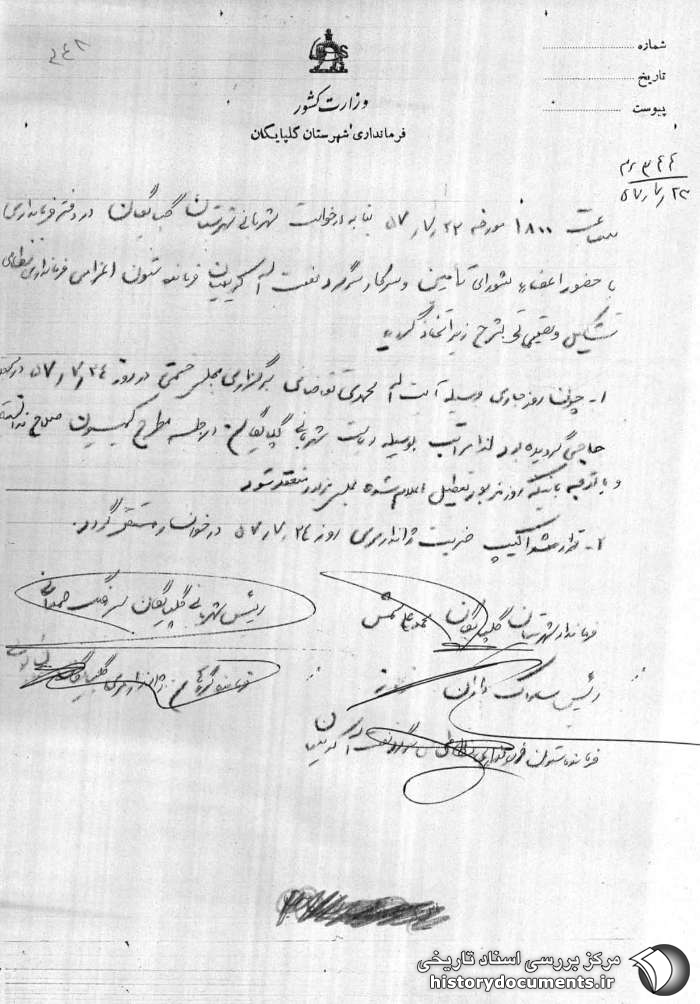 ۲۴۸
شماره
تاریخ
پیوست
وزارت کشور
فرمانداری شهرستان گلپایگان
۳۴۴
۵۷/۷/۲۳
ساعت ۱۸۰۰ مورخه ۵۷/۷/۲۳ بنا به درخواست شهربانی شهرستان گلپایگان در دفتر فرمانداری
با حضور اعضاء شورای تأمین و سرکار سرگرد نعمت اله کریمیان فرمانده ستون اعزامی فرمانداری نظامی
تشکیل و تصمیماتی بشرح زیر اتخاذ گردید
۱- چون روز جاری وسیله آیت اله محمدی تقاضای برگزاری مجلس ختمی در روز ۵۷/۷/۲۴ در
حاجی گردیده بود لذا مراتب بوسیله ریاست شهربانی گلپایگان در جلسه مطرح کمیسیون صلاح ندانسته
و با توجه باینکه روز مزبور تعطیل اعلام شده مجلس مزبور منعقد شود
۲- قرار شد اکیپ ضربت ژاندارمری روز ۵۷/۷/۲۴ در خوانسار مستقر گردد.
فرماندار شهرستان گلپایگان محمد علی شمس
رئیس شهربانی گلپایگان سرهنگ
رئیس ساواک
فرمانده گروهان ژاندارمری گلپایگان
فرمانده ستون فرمانداری نظامی سرگرد نعمت اله کریمیان
مرکز بررسی اسناد تاریخی
historydocuments.ir